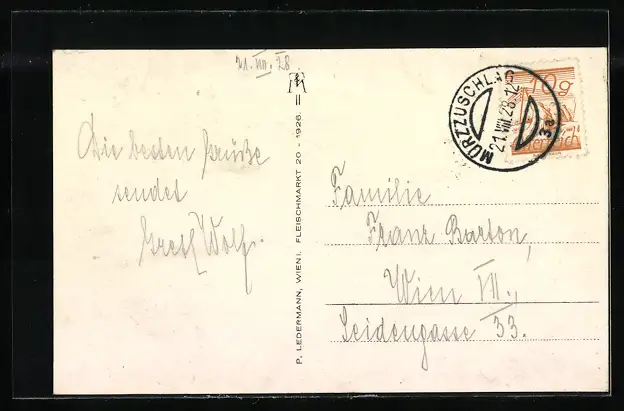 21. VIII. 28
MÜRZZUSCHLAG
21.VIII.28.12
3a
10g
Österreich
Die besten Grüße
sendet
Gretl Wolf.
P. LEDERMANN, WIEN I. FLEISCHMARKT 20 - 1926.
II
Familie
Franz Barton,
Wien VII.,
Seidengasse 33.